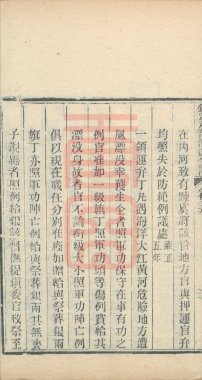 在內河致有疎虞將該管地方官與押運官弁
均照失於防範例議處雍正五年
一領運弁丁凡遇海洋大江黃河危險地方遭
風漂沒幸獲生全者照軍功保守在事有功之
例官准加一級旗丁照軍功頭等傷例賞給其
漂沒身故者官不論銜級大小照軍功陣亡例
俱以現在職任分別准廕加贈給與祭葬銀兩
旗丁亦照軍功陣亡例給與祭葬銀兩其無妻
子親屬者照例給半該督撫提鎮委官致祭至